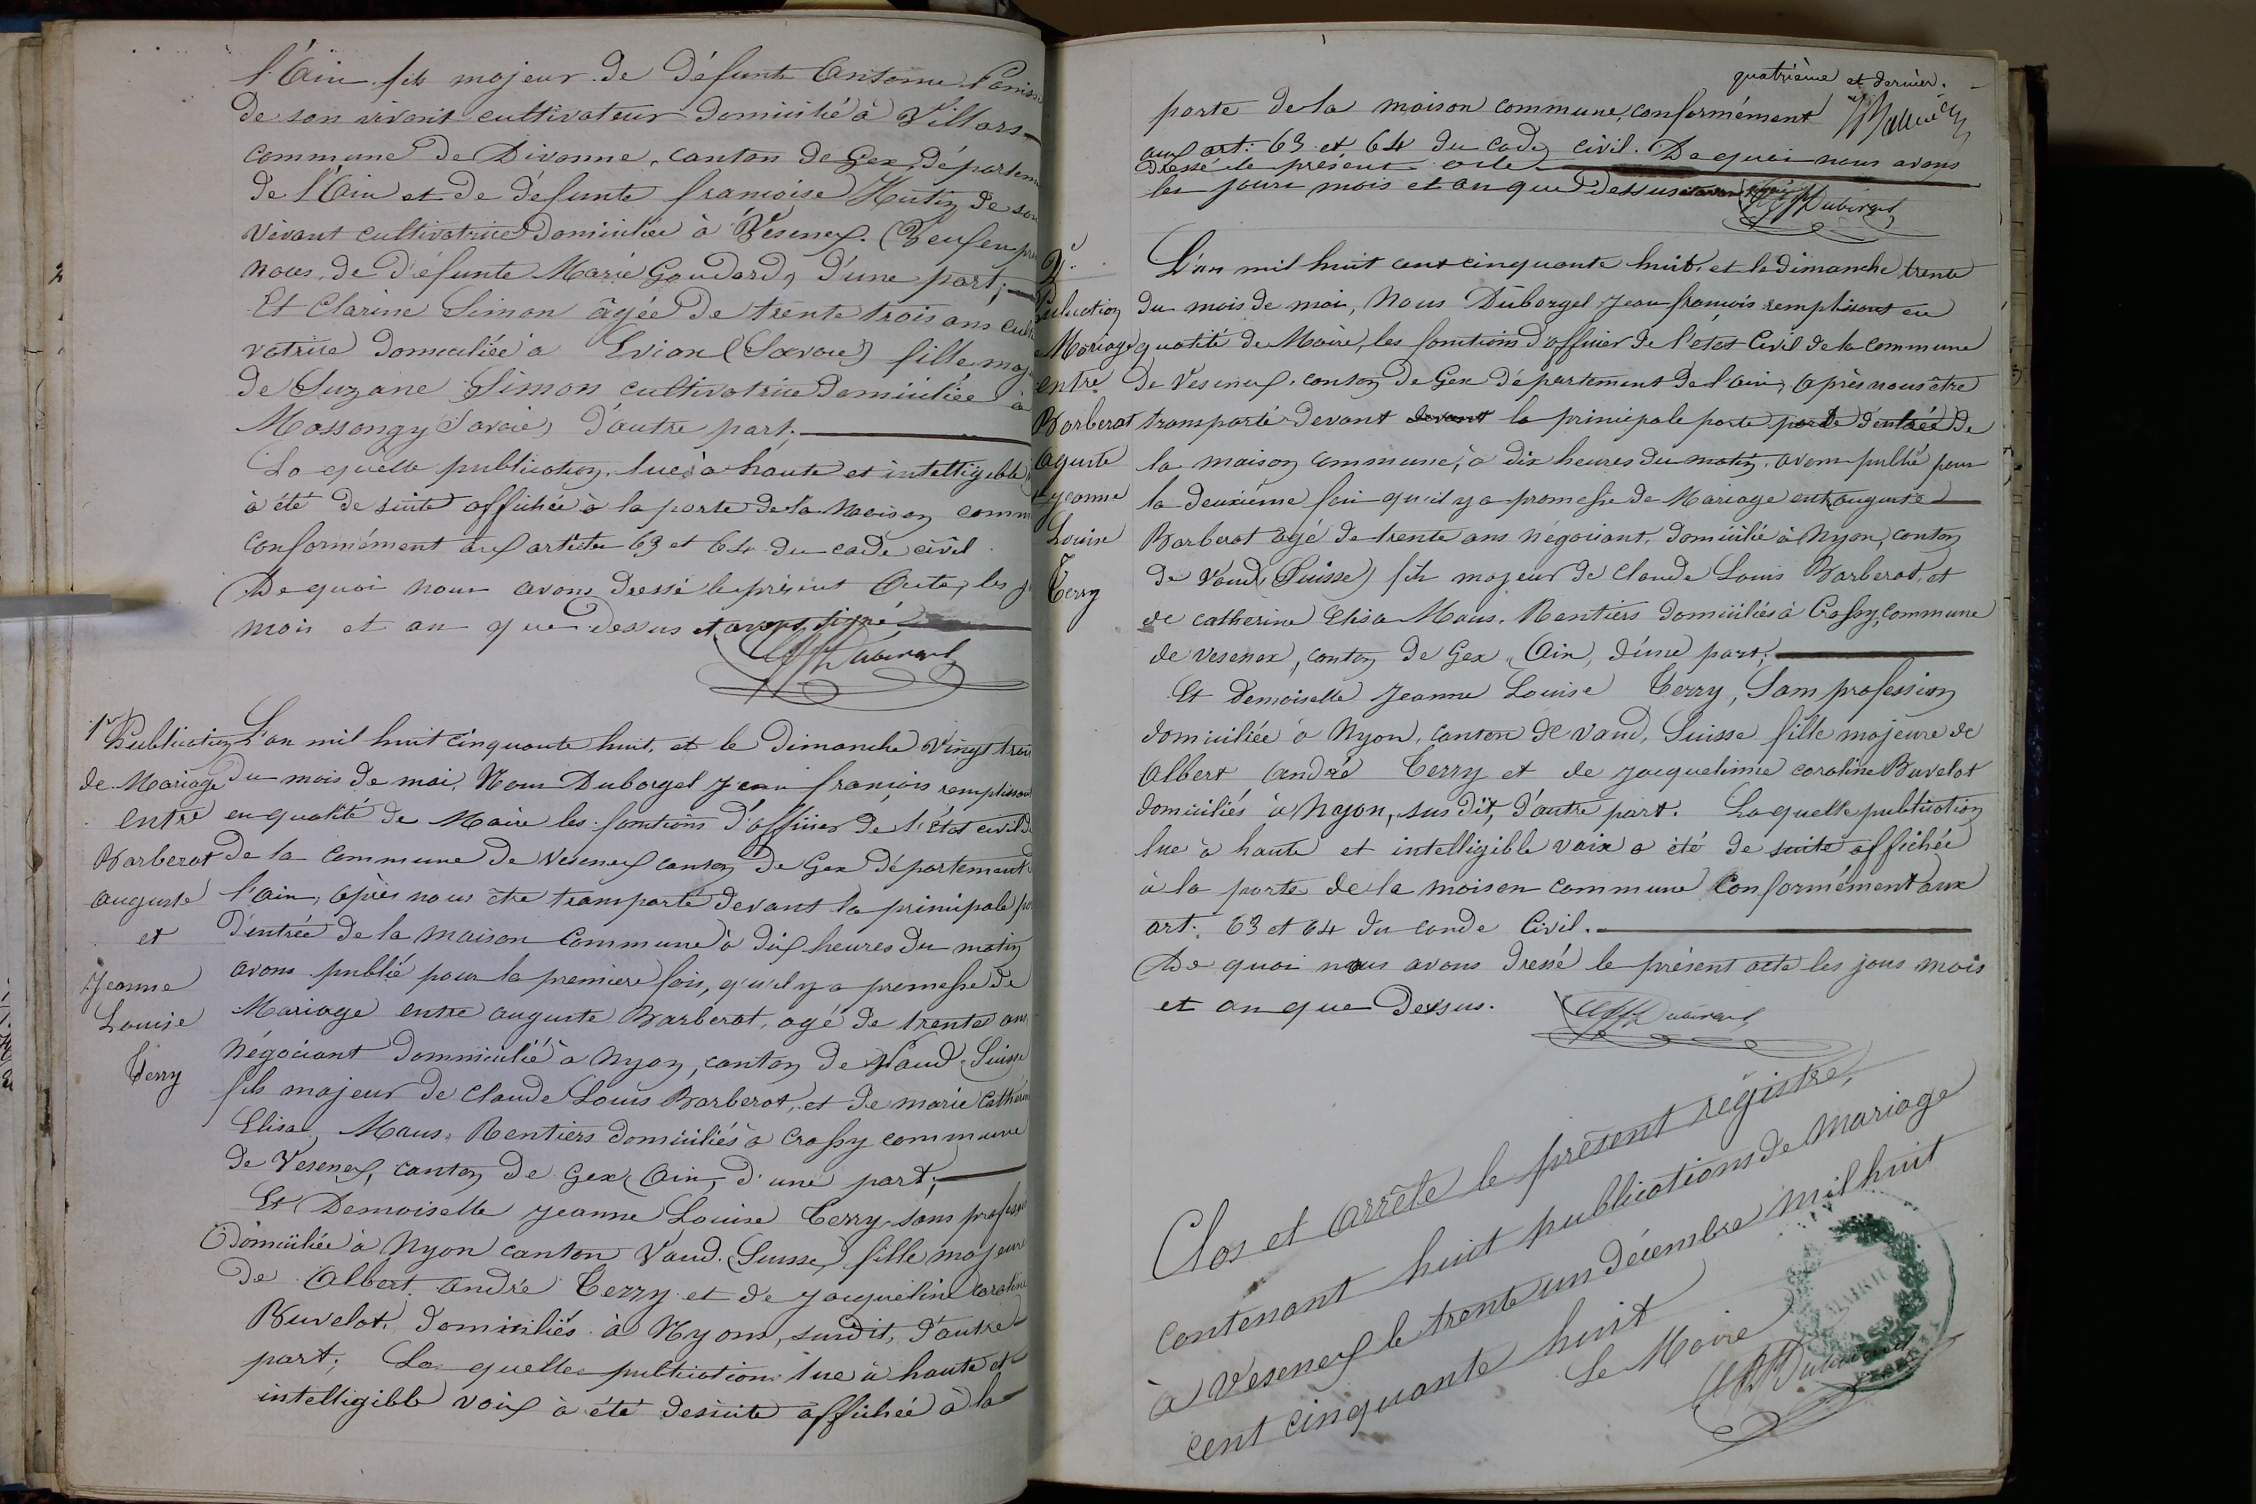 l'Ain fils majeur de défunte Antoine
de son vivant cultivateur domicilié à Villars
commune de Divonne, canton de Gex, départem
de l'Ain et de défunte françoise Hutin de son
vivant cultivatrice domiciliée à Vesenex. (Veuf en
nous, de défunte Marie Goudard, d'une part;
Et Clarine Simon âgée de trente trois ans culti
vatrice domiciliée à Evian (Savoie) fille maj
de Suzane Simon cultivatrice domiciliée à
Massongy (Savoie) d'autre part;
La quelle publication, lue à haute et intelligible
à été de suite affichée à la porte de la Maison comm
conformément aux articles 63 et 64 du code civil
De quoi nous avons dressé le présent Acte, les j
mois et an que dessus et avons signé
Duborgel
1re Publication
de Mariage
entre
Barberat
auguste
et
Jeanne
Louise
Terry
L'an mil huit cinquante huit, et le Dimanche Vingt trois
du mois de mai, Nous Duborgel Jean françois remplissant
en qualité de Maire les fonctions d'officier de l'état civil d
de la commune de Vesenex canton de Gex département
l'ain, après nous être transporté devant la principale po
d'entrée de la maison commune à dix heures du matin
avons publié pour la premiere fois, qu'il y a promesse de
Mariage entre auguste Barberat, agé de trente ans
Négociant domicilié à Nyon, canton de Vaud Suisse
fils majeur de Claude Louis Barberat, et de marie Catherin
Elisa, Maus, Rentiers domiciliés à Crassy commune
de Vesenex, canton de Gex (Ain, d'une part;
Et Demoiselle Jeanne Louise Terry sans profession
Domiciliée à Nyon canton Vaud. (Suisse) fille majeur
de Albert andré Terry et de Jacqueline Caroline
Buvelot, domiciliés à Nyon, susdit, d'autre
part; La quelle publication lue à haute et
intelligible voix à été desuite affichée à la
quatrième et dernier.
porte de la maison commune, conformément
aux art: 63 et 64 du code civil. De quoi nous avons
dressé le présent acte
les jours mois et an que dessus
Duborgel
2e
Publication
Mariage
entre
Barberat
aguste
et Jeanne
Louise
Terry
L'an mil huit cent cinquante huit, et le Dimanche trente
du mois de mai, Nous Duborgel Jean françois remplissant en
qualité de Maire, les fonctions d'officier de l'état Civil de la commune
de Vesenex, canton de Gex département de l'ain, après nous être
transporté devant devant la principale porte porte d'entrée de
la maison commune, à dix heures du matin, avons publié pour
la deuxième fois qu'il y a promesse de Mariage entre auguste
Barberat agé de trente ans négociant, domicilié à Nyon, canton
de Vaud (Suisse) fils majeur de Claude Louis Barberat, et
de catherine Elisa Maus, Rentiers domiciliés à Crassy, commune
de Vesenex, canton de Gex, Ain, d'une part;
Et Demoiselle Jeanne Louise Terry, Sans profession
domiciliée à Nyon, canton de Vaud, Suisse fille majeure de
Albert André Terry et de Jacquelinne caroline Buvelot
domiciliés à Nyon, sus dit, d'autre part. La quelle publication
lue à haute et intelligible voix a été de suite affichée
à la porte de la maison commune Conformément aux
art: 63 et 64 du conde Civil.
De quoi nous avons dressé le présent acte les jous mois
et an que dessus.
Duborgel
Clos et arrêté le présent régistre,
contenant huit publications de Mariage
à Vesenex le trente un décembre mil huit
cent cinquante huit
Le Maire
Duborgel
MAIRIE